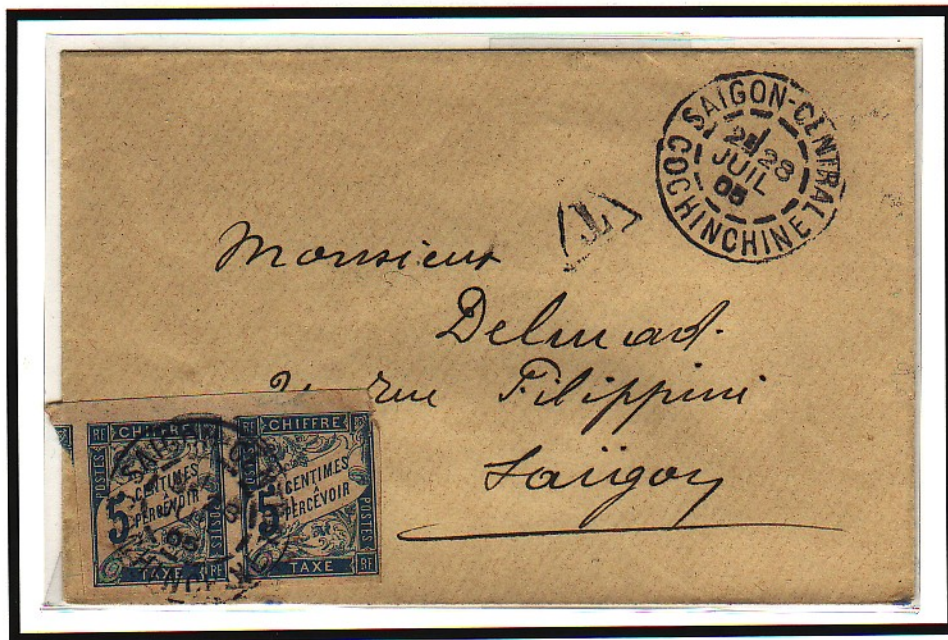 SAIGON-CENTRAL
28
JUIL
05
COCHINCHINE
T
Monsieur
Delmad.
rue Filippini
Saïgon
RF CHIFFRE
POSTES
5 CENTIMES
À
PERCEVOIR
POSTES
TAXE RF
RF CHIFFRE
5 CENTIMES
À
PERCEVOIR
POSTES
TAXE RF